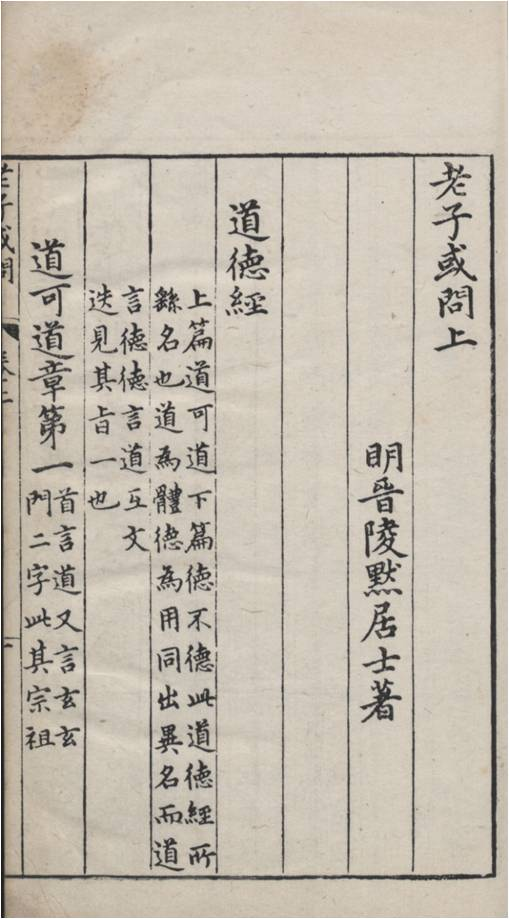 老子或問上
明晉陵黙居士著
道德經
上篇道可道下篇德不德此道德經所
繇名也道為體德為用同出異名而道
言德德言道互文
迭見其旨一也
道可道章第一
首言道又言玄玄
門二字此其宗祖
老子或問